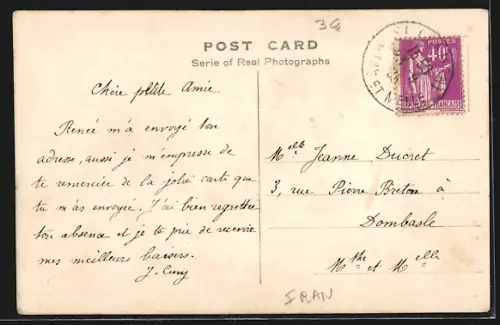 3G
POST CARD
Serie of Real Photographs
POSTES
40c
FRANÇAISE
Chère petite Amie
Renée m'a envoyé ton
adresse, aussi je m'empresse de
te remercier de la jolie carte que
tu m'as envoyé. J'ai bien regretter
ton absence et je te prie de recevoir
mes meilleurs baisers.
J. Cuny
Melle Jeanne Ducret
3, rue Pierre Breton à
Dombasle
Mthe et Melle
IRAN